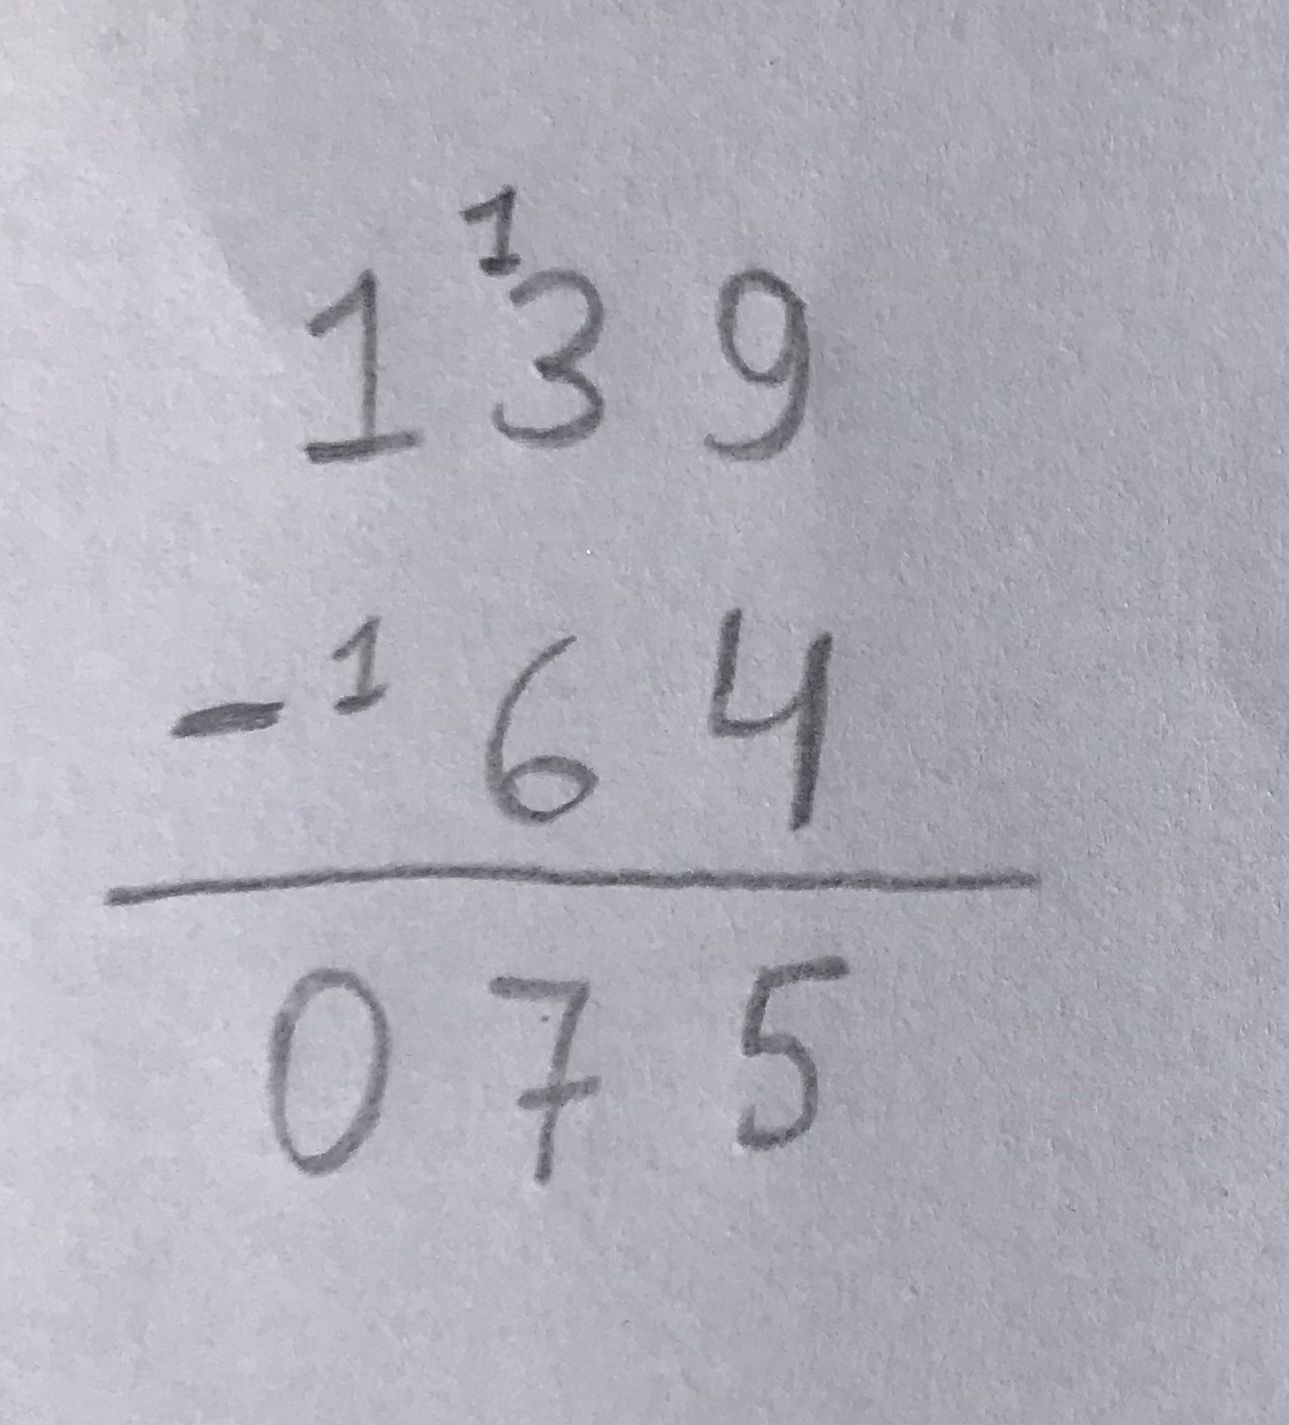 1
139
- 1 64
075